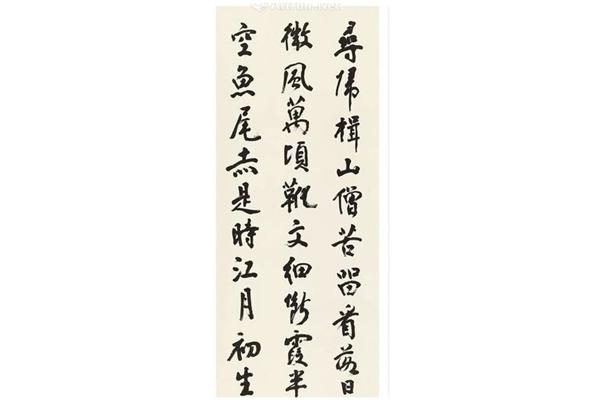 尋歸楫山僧苦留看落日
微風萬頃靴文細斷霞半
空魚尾赤是時江月初生